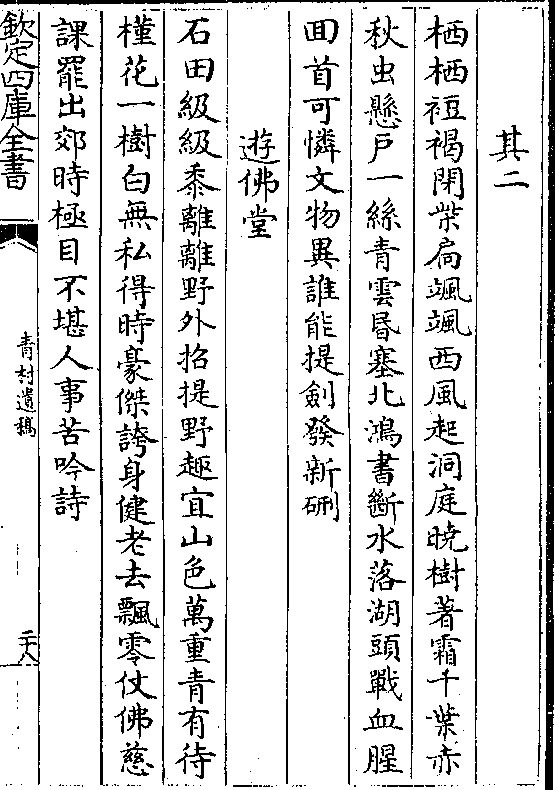 其二
栖栖裋褐閉柴扄颯颯西風起洞庭曉樹著霜千葉赤
秋虫懸戶一絲青雲昏塞北鴻書斷水落湖頭戰血腥
囬首可憐文物異誰能提劍發新硎
遊佛堂
石田級級黍離離野外招提野趣宜山色萬重青有待
槿花一樹白無私得時豪傑誇身健老去飄零仗佛慈
課罷出郊時極目不堪人事苦吟詩
欽定四庫全書
青村遺稿
二十八